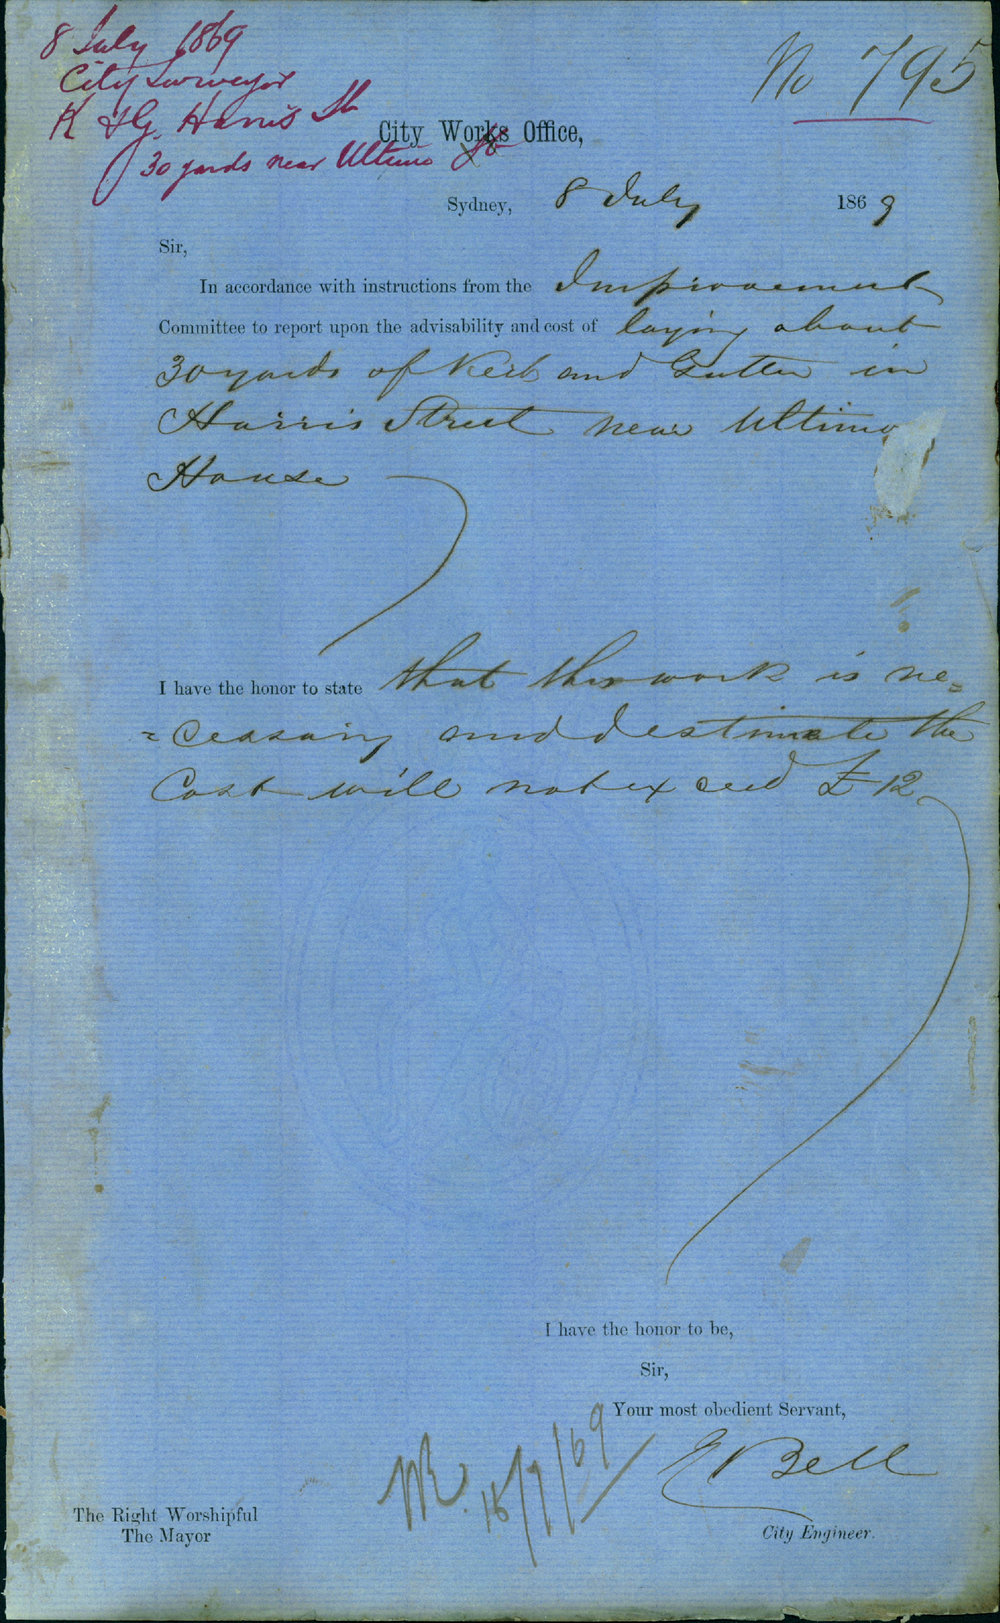 8 July 1869
City Surveyor
K & G. Harris St
30 yards near Ultimo
No 795
City Works Office,
Sydney, 8 July 1869
Sir,
In accordance with instructions from the Improvement
Committee to report upon the advisability and cost of laying about
30 yards of Kerb and Gutter in
Harris Street near Ultimo
House
I have the honor to state that this work is ne=
=cessary and I estimate the
Cost will not exceed £12
I have the honor to be,
Sir,
Your most obedient Servant,
E Bell
City Engineer.
/7/69
The Right Worshipful
The Mayor